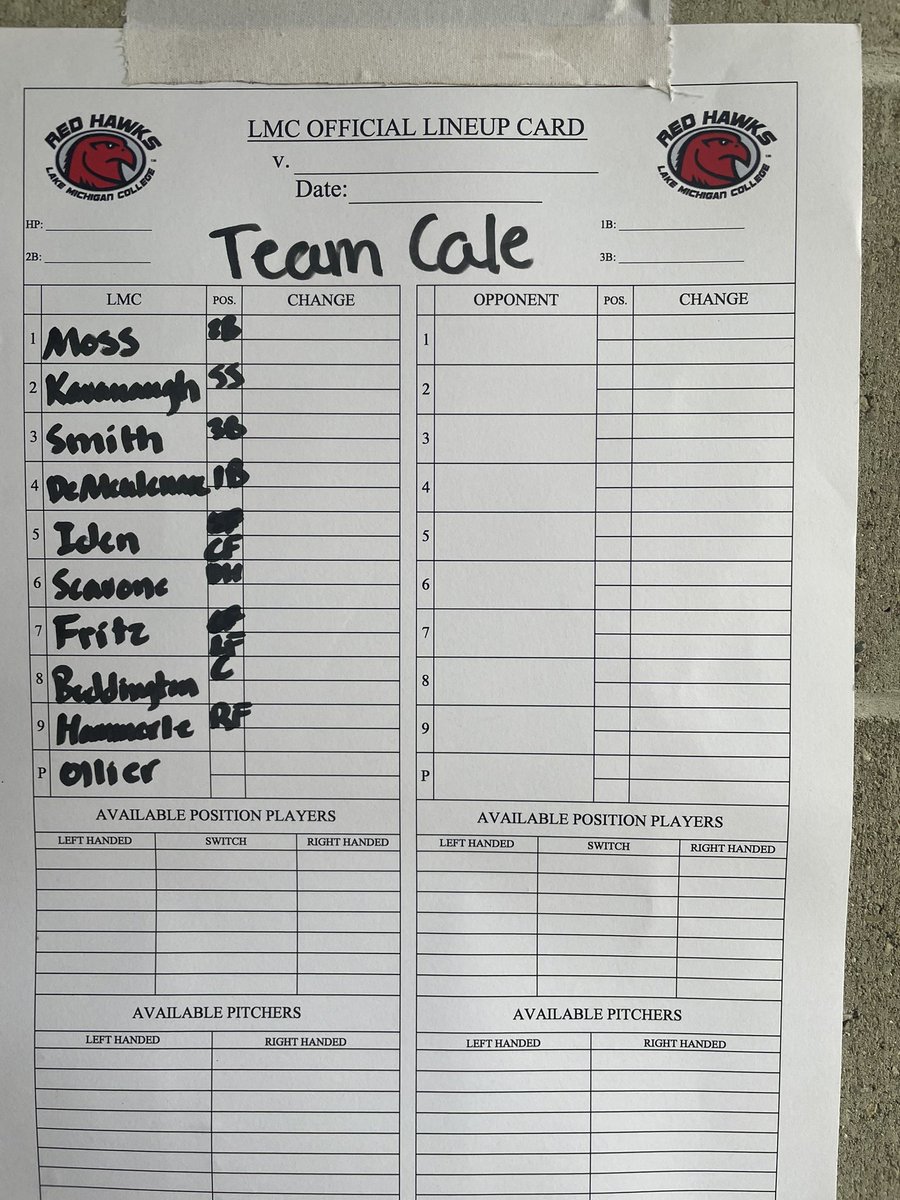 RED HAWKS
LAKE MICHIGAN COLLEGE
LMC OFFICIAL LINEUP CARD
RED HAWKS
LAKE MICHIGAN COLLEGE
v.
Date:
HP:
1B:
2B:
3B:
Team Cale
LMC POS. CHANGE
1 Moss
2 Kavanaugh SS
3 Smith 3B
4 1B
5 Iden CF
6 Scavone DH
7 Fritz LF
8 Beddington C
9 Hammerle RF
P Ollier
OPPONENT POS. CHANGE
1
2
3
4
5
6
7
8
9
P
AVAILABLE POSITION PLAYERS
LEFT HANDED SWITCH RIGHT HANDED
AVAILABLE POSITION PLAYERS
LEFT HANDED SWITCH RIGHT HANDED
AVAILABLE PITCHERS
LEFT HANDED RIGHT HANDED
AVAILABLE PITCHERS
LEFT HANDED RIGHT HANDED